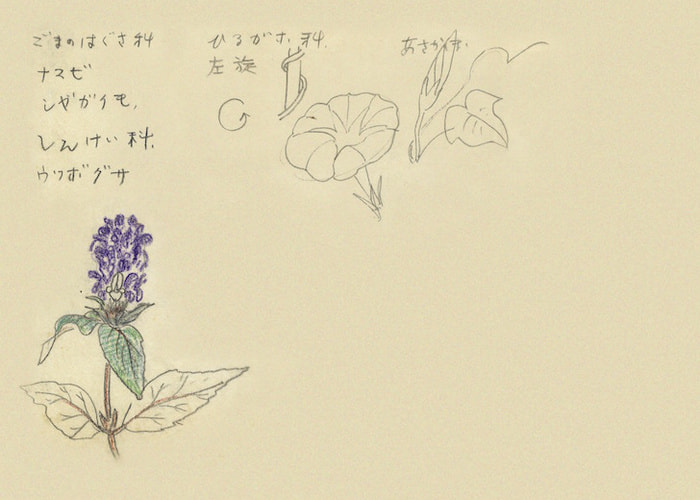 ごまのはぐさ科
ナスビ
シャガイモ,
しんけい科.
ウツボグサ
ひるがお科.
左旋
あさがお.